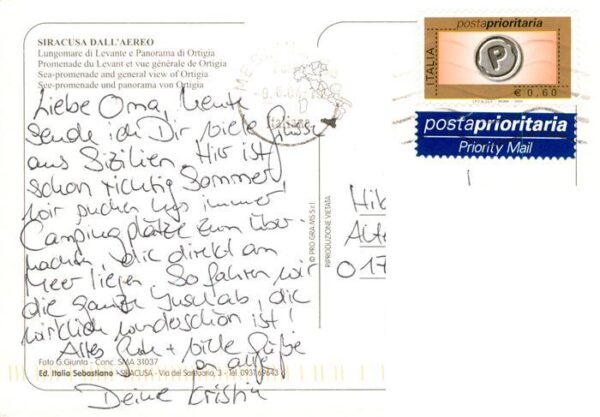 SIRACUSA DALL'AEREO
Lungomare di Levante e Panorama di Ortigia
Promenade du Levant et vue générale de Ortigia
Sea-promenade and general view of Ortigia
See-promenade und panorama von Ortigia
Liebe Oma, heute
sende ich Dir viele Grüsse
aus Sizilien. Hier ist
schon richtig Sommer,
wir suchen uns immer
Campingplätze zum Über-
nachten, die direkt am
Meer liegen. So fahren wir
die ganze Insel ab, die
wirklich wunderschön ist!
Alles Gute + viele Grüße
an alle
Deine Kristin
Foto G.Giunta - Conc. SMA 31037
Ed. Italia Sebastiano - SIRACUSA - Via del Santuario, 3 - Tel 0931 69643
© PRO.GRA.MS S.r.l
RIPRODUZIONE VIETATA
postaprioritaria
ITALIA
P
€ 0,60
postaprioritaria
Priority Mail
Hil
Alte
017